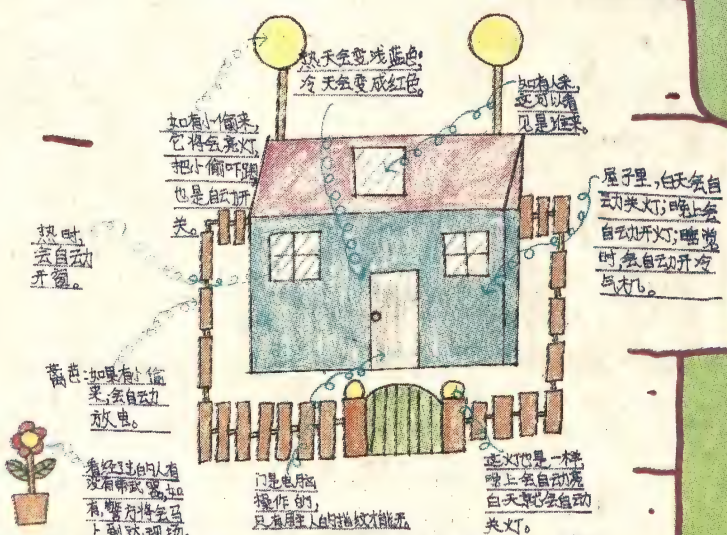 热天会变浅蓝色;
冷天会变成红色。
如有人来,
这可以看
见是谁来。
如有小偷来,
它将会亮灯
把小偷吓跑
也是自动开
关。
屋子里,白天会自
动关灯;晚上会
自动开灯;睡觉
时,会自动开冷
气机。
热时,
会自动
开窗。
如果有小偷
来,会自动
放电。
看经过的人有
没有带武器,如
有,警方将会马
上到达现场。
门是电脑
操作的,
只有用主人的指纹才能开
这灯也是一样
晚上会自动亮
白天就会自动
关灯。